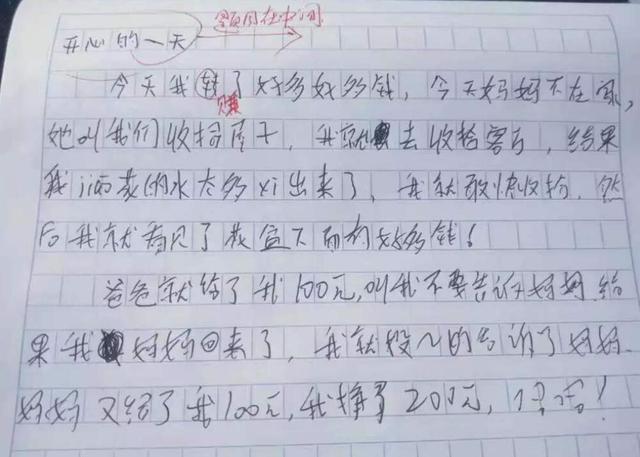 题目在中间
开心的一天
今天我钱了好多好多钱，今天妈妈不在家，
赚
她叫我们收拾屋子，我就去收拾客厅，结果
我jia的水太多xi出来了，我就敢快收拾，然
后我就看见了下面的好多钱！
爸爸就给了我100元，叫我不要告诉妈妈结
果我妈妈回来了，我就投人的告诉了妈妈
妈妈又给了我100元，我挣了200元，！